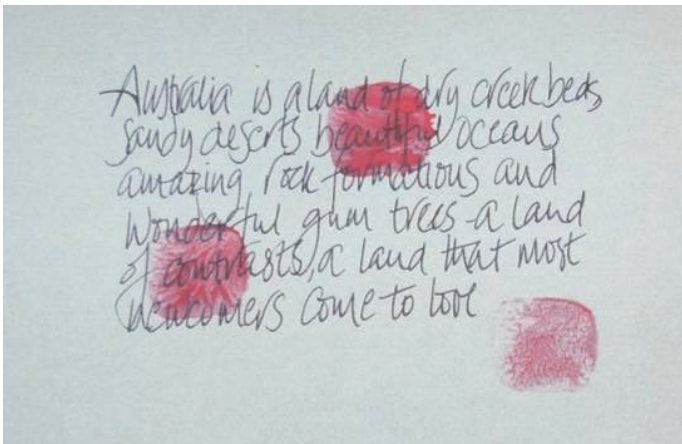 Australia is a land of dry creek beds,
sandy deserts beautiful oceans
amazing rock formations and
wonderful gum trees - a land
of contrasts, a land that most
newcomers come to love